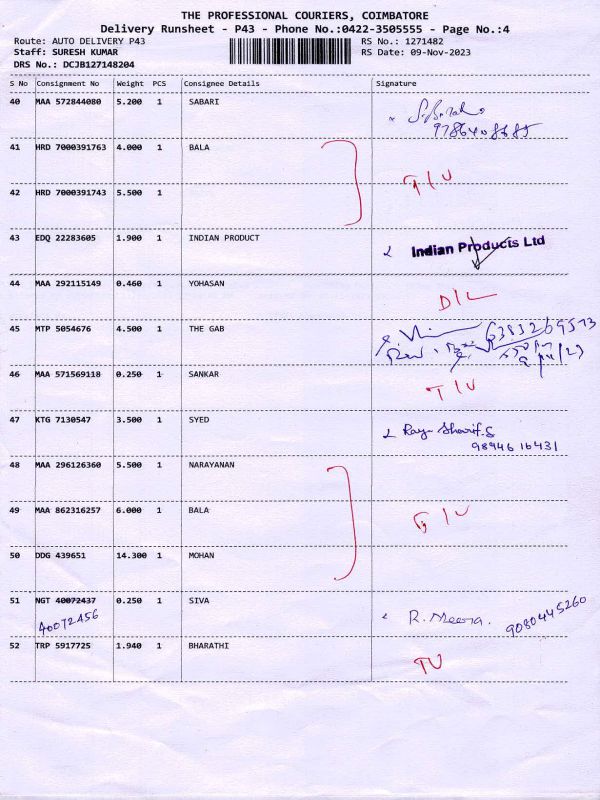 THE PROFESSIONAL COURIERS, COIMBATORE
Delivery Runsheet - P43 - Phone No.:0422-3505555 - Page No.:4
Route: AUTO DELIVERY P43 RS No.: 1271482
Staff: SURESH KUMAR RS Date: 09-Nov-2023
DRS No.: DCJB127148204
S No Consignment No Weight PCS Consignee Details Signature
40 MAA 572844080 5.200 1 SABARI
41 HRD 7000391763 4.000 1 BALA
42 HRD 7000391743 5.500 1
43 EDQ 22283605 1.900 1 INDIAN PRODUCT Indian Products Ltd
44 MAA 292115149 0.460 1 YOHASAN D/L
45 MTP 5054676 4.500 1 THE GAB 6383269573
46 MAA 571569118 0.250 1 SANKAR T/U
47 KTG 7130547 3.500 1 SYED
98946 16431
48 MAA 296126360 5.500 1 NARAYANAN
49 MAA 862316257 6.000 1 BALA
50 DDG 439651 14.300 1 MOHAN
51 NGT 40072437 0.250 1 SIVA R. Meena. 9080445260
40072456
52 TRP 5917725 1.940 1 BHARATHI TU